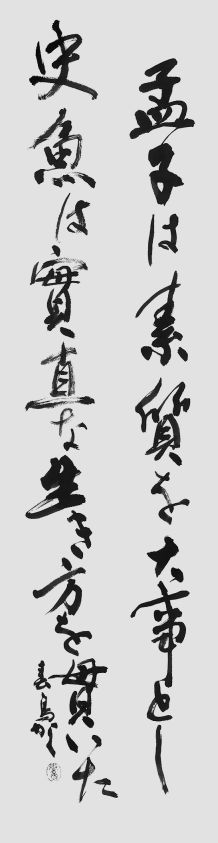 孟子は素質を大事とし
史魚は實直な生き方を貫いた